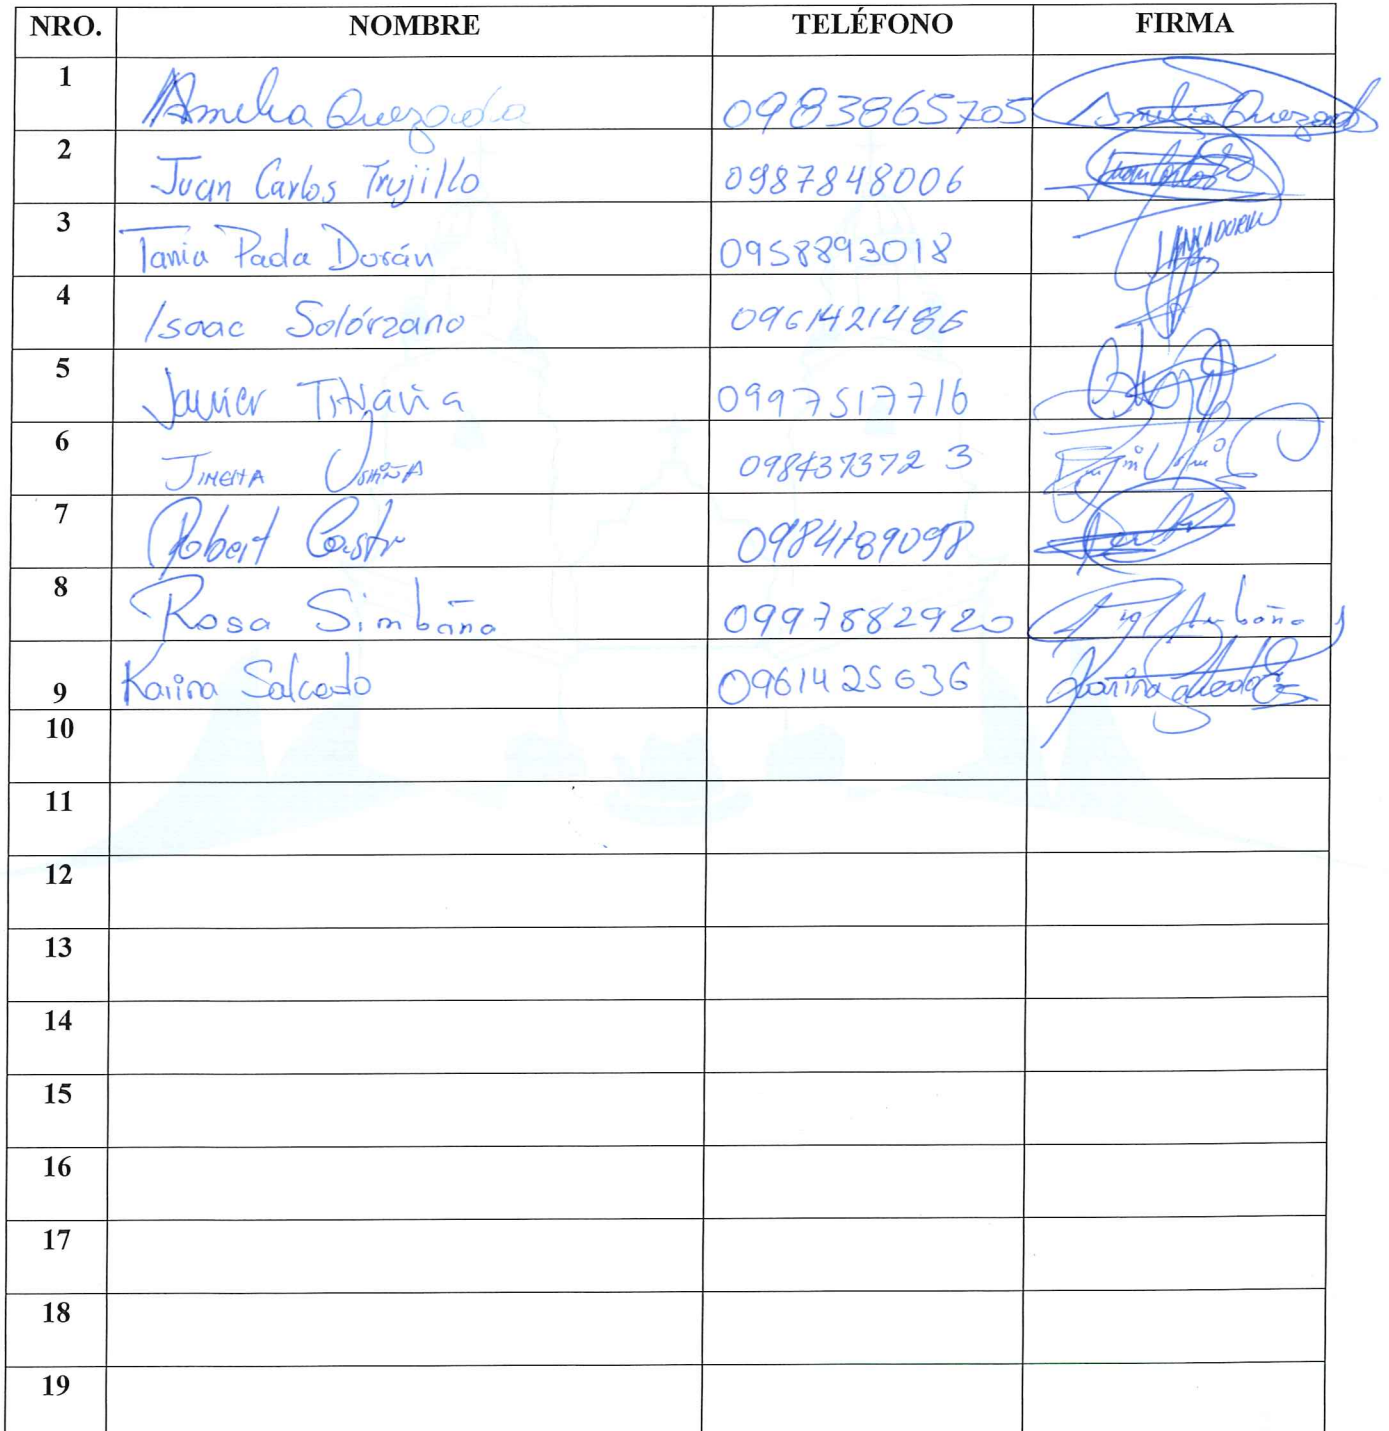 NRO. NOMBRE TELÉFONO FIRMA
1 Amelia Quezada 0983865705 Amelia Quezada
2 Juan Carlos Trujillo 0987848006
3 Tania Pada Dorán 0958893018
4 Isaac Solórzano 0961421486
5 Javier 0997517716
6 Jimena Ushiña 0984373723
7 Robert Castr 0984789098
8 Rosa Simbaña 0997882920
9 Karina Salcedo 0961425636
10
11
12
13
14
15
16
17
18
19